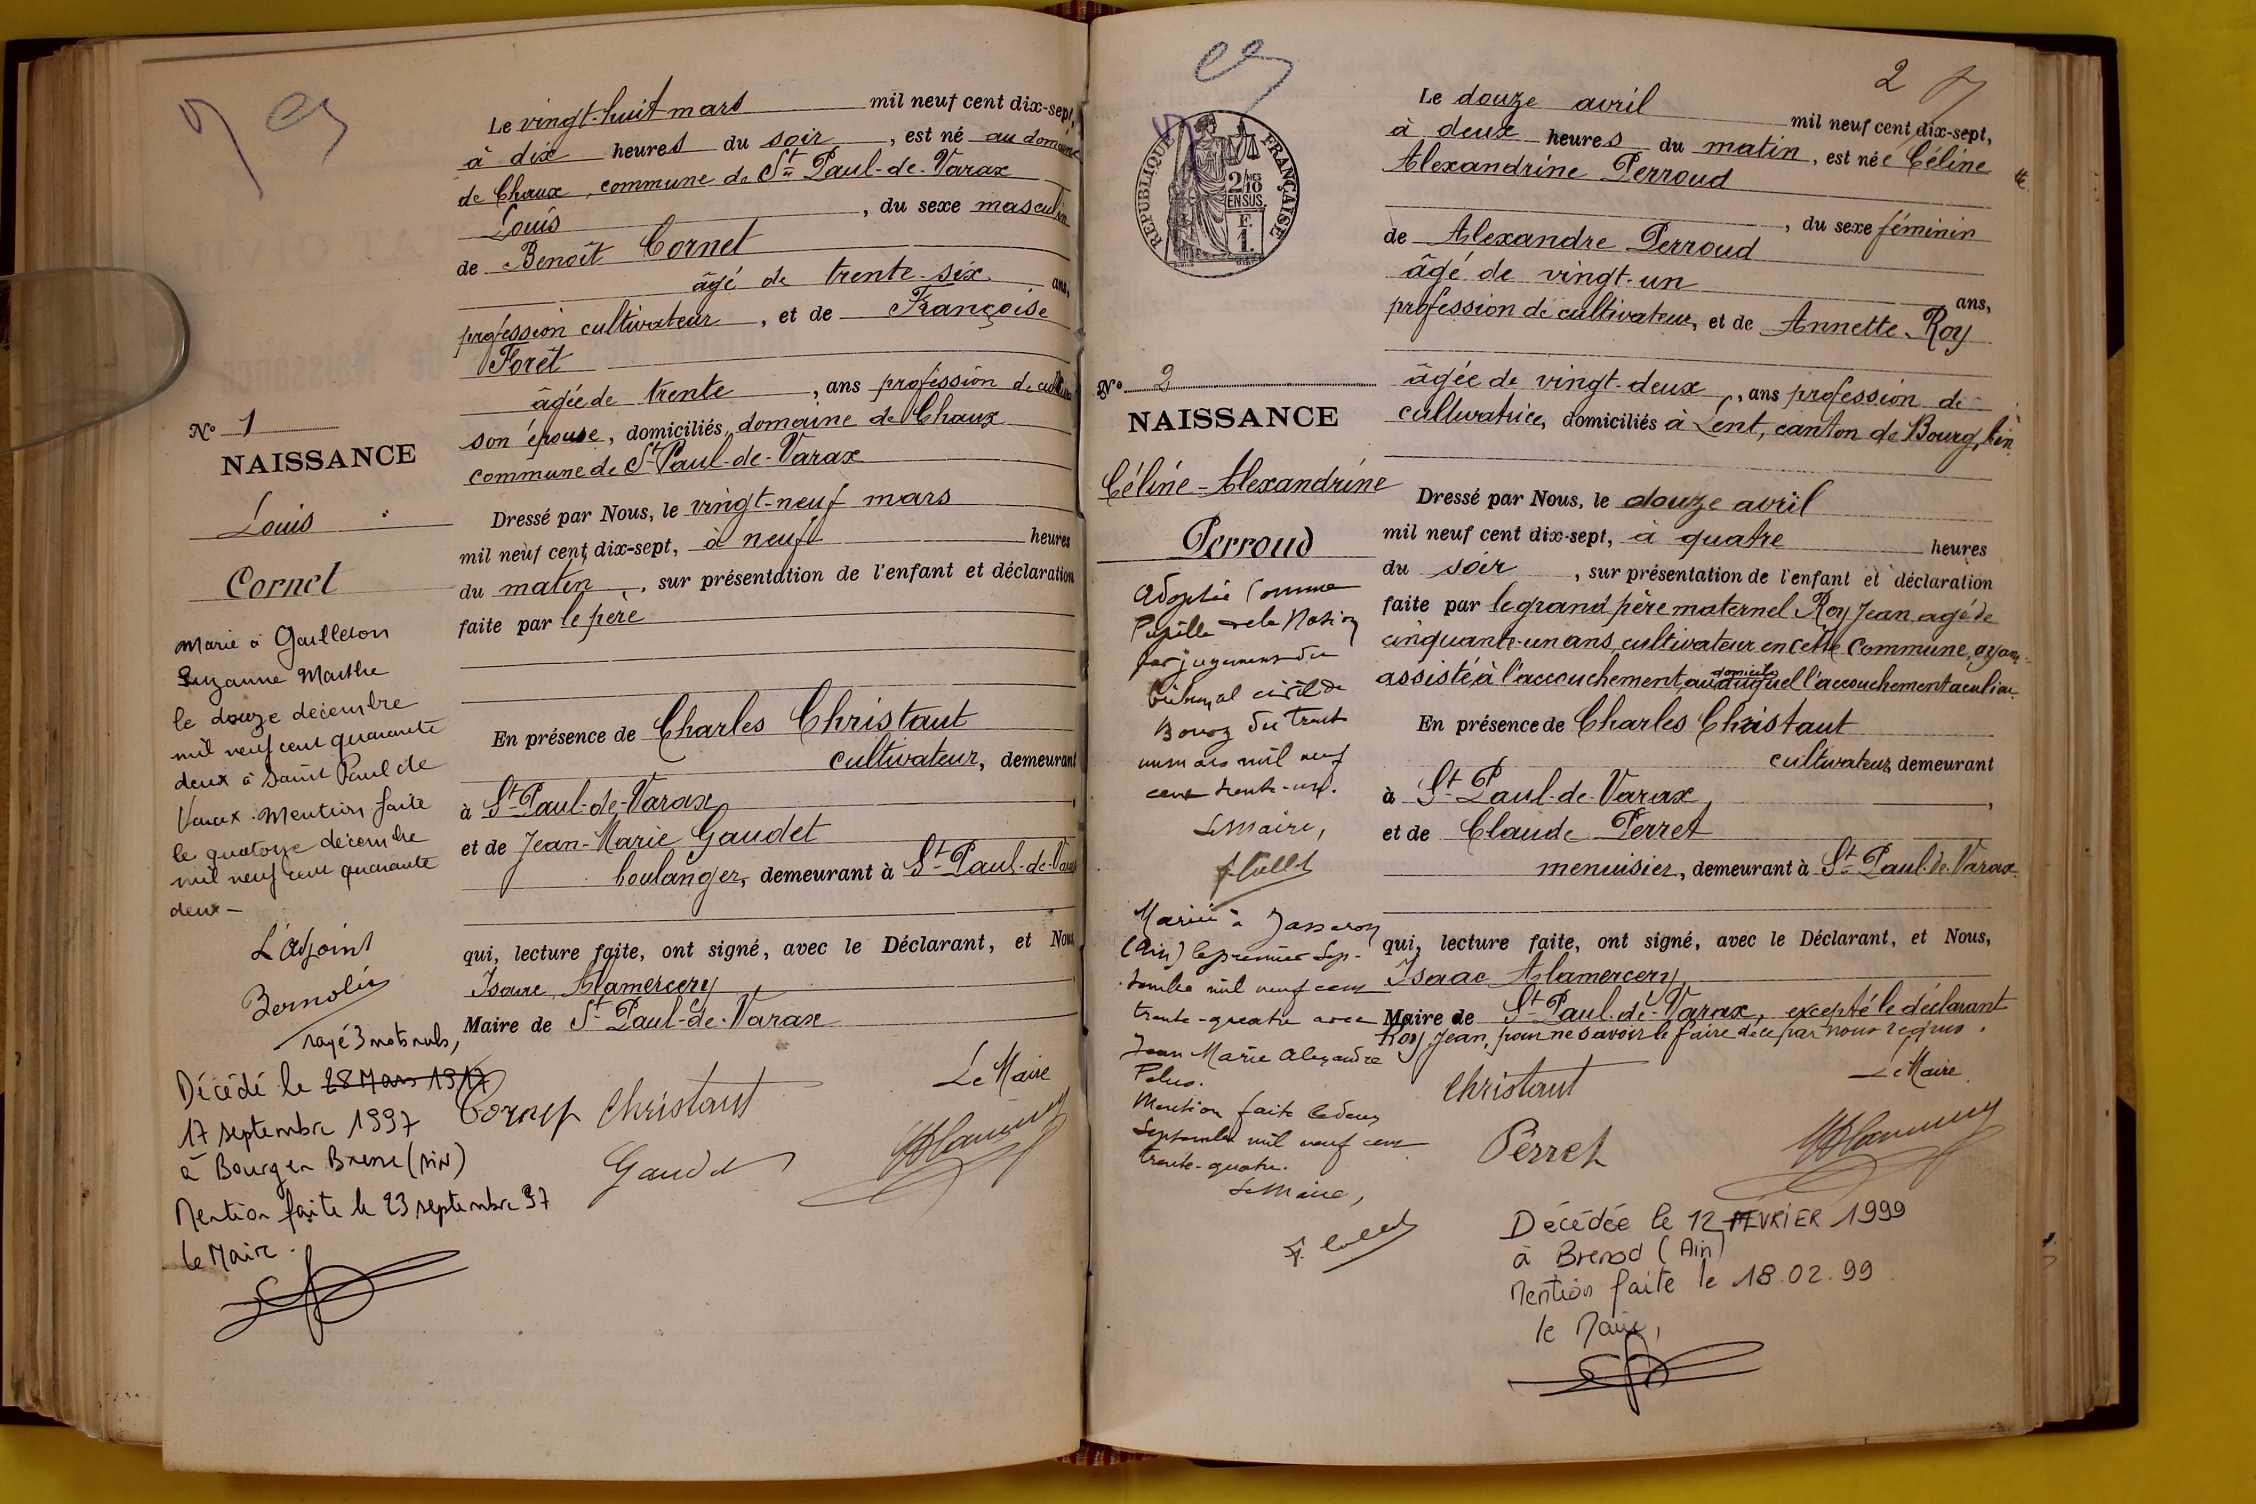 Le vingt-huit mars mil neuf cent dix-sept,
à dix heures du soir, est né au domaine
de Chaux, commune de St Paul-de-Varax
Louis, du sexe masculin
de Benoît Cornet
âgé de trente-six ans,
profession cultivateur, et de Françoise
Forêt
âgée de trente, ans profession de
son épouse, domiciliés domaine de Chaux
commune de St Paul-de-Varax
Dressé par Nous, le vingt-neuf mars
mil neuf cent dix-sept, à neuf heures
du matin, sur présentation de l'enfant et déclaration
faite par le père
En présence de Charles Christaut
cultivateur, demeurant
à St Paul-de-Varax,
et de Jean-Marie Gaudet
boulanger, demeurant à St Paul-de-Varax
qui, lecture faite, ont signé, avec le Déclarant, et Nous
Isaac Alamercery
Maire de St Paul-de-Varax
Le Maire
Cornet Christaut
Gaudet
No 1
NAISSANCE
Louis
Cornet
Marié à Gailleton
Suzanne Marthe
le douze décembre
mil neuf cent quarante
deux à Saint Paul de
Varax. Mention faite
le quatorze décembre
mil neuf cent quarante
deux –
L'Adjoint
rayé 3 mots nuls,
Décédé le 28 Mars 1917
17 septembre 1997
à Bourg en Bresse (AIN)
Mention faite le 23 septembre 97
le Maire.
2
Le douze avril mil neuf cent dix-sept,
à deux heures du matin, est née Céline
Alexandrine Perroud
, du sexe féminin
de Alexandre Perroud
âgé de vingt-un ans,
profession de cultivateur, et de Annette Roy
âgée de vingt-deux, ans profession de
cultivatrice, domiciliés à Lent, canton de Bourg,
Dressé par Nous, le douze avril
mil neuf cent dix-sept, à quatre heures
du soir, sur présentation de l'enfant et déclaration
faite par le grand père maternel Roy Jean, agé de
cinquante-un ans, cultivateur en cette commune, ayant
assisté à l'accouchement, au domicile duquel l'accouchement a eu lieu.
En présence de Charles Christaut
cultivateur, demeurant
à St Paul-de-Varax,
et de Claude Perret
menuisier, demeurant à St Paul-de-Varax
qui, lecture faite, ont signé, avec le Déclarant, et Nous,
Isaac Alamercery
Maire de St Paul-de-Varax, excepté le déclarant
Roy, Jean, pour ne savoir le faire de ce par nous requis.
Le Maire
Christaut
Perret
Décédée le 12 FEVRIER 1999
à Brenod (Ain)
Mention faite le 18.02.99
le Maire,
REPUBLIQUE FRANÇAISE
2/10 MES
EN SUS
F.
1.
No 2
NAISSANCE
Céline-Alexandrine
Perroud
Adoptée comme
Pupille de la Nation
par jugement du
tribunal civil de
Bourg du trente
un mars mil neuf
cent trente-un.
Le Maire,
Mariée à Jasseron
(Ain) le premier Sep-
tembre mil neuf cent
trente-quatre avec
Jean Marie Alexandre
Mention faite le deux
Septembre mil neuf cent
trente-quatre.
Le Maire,